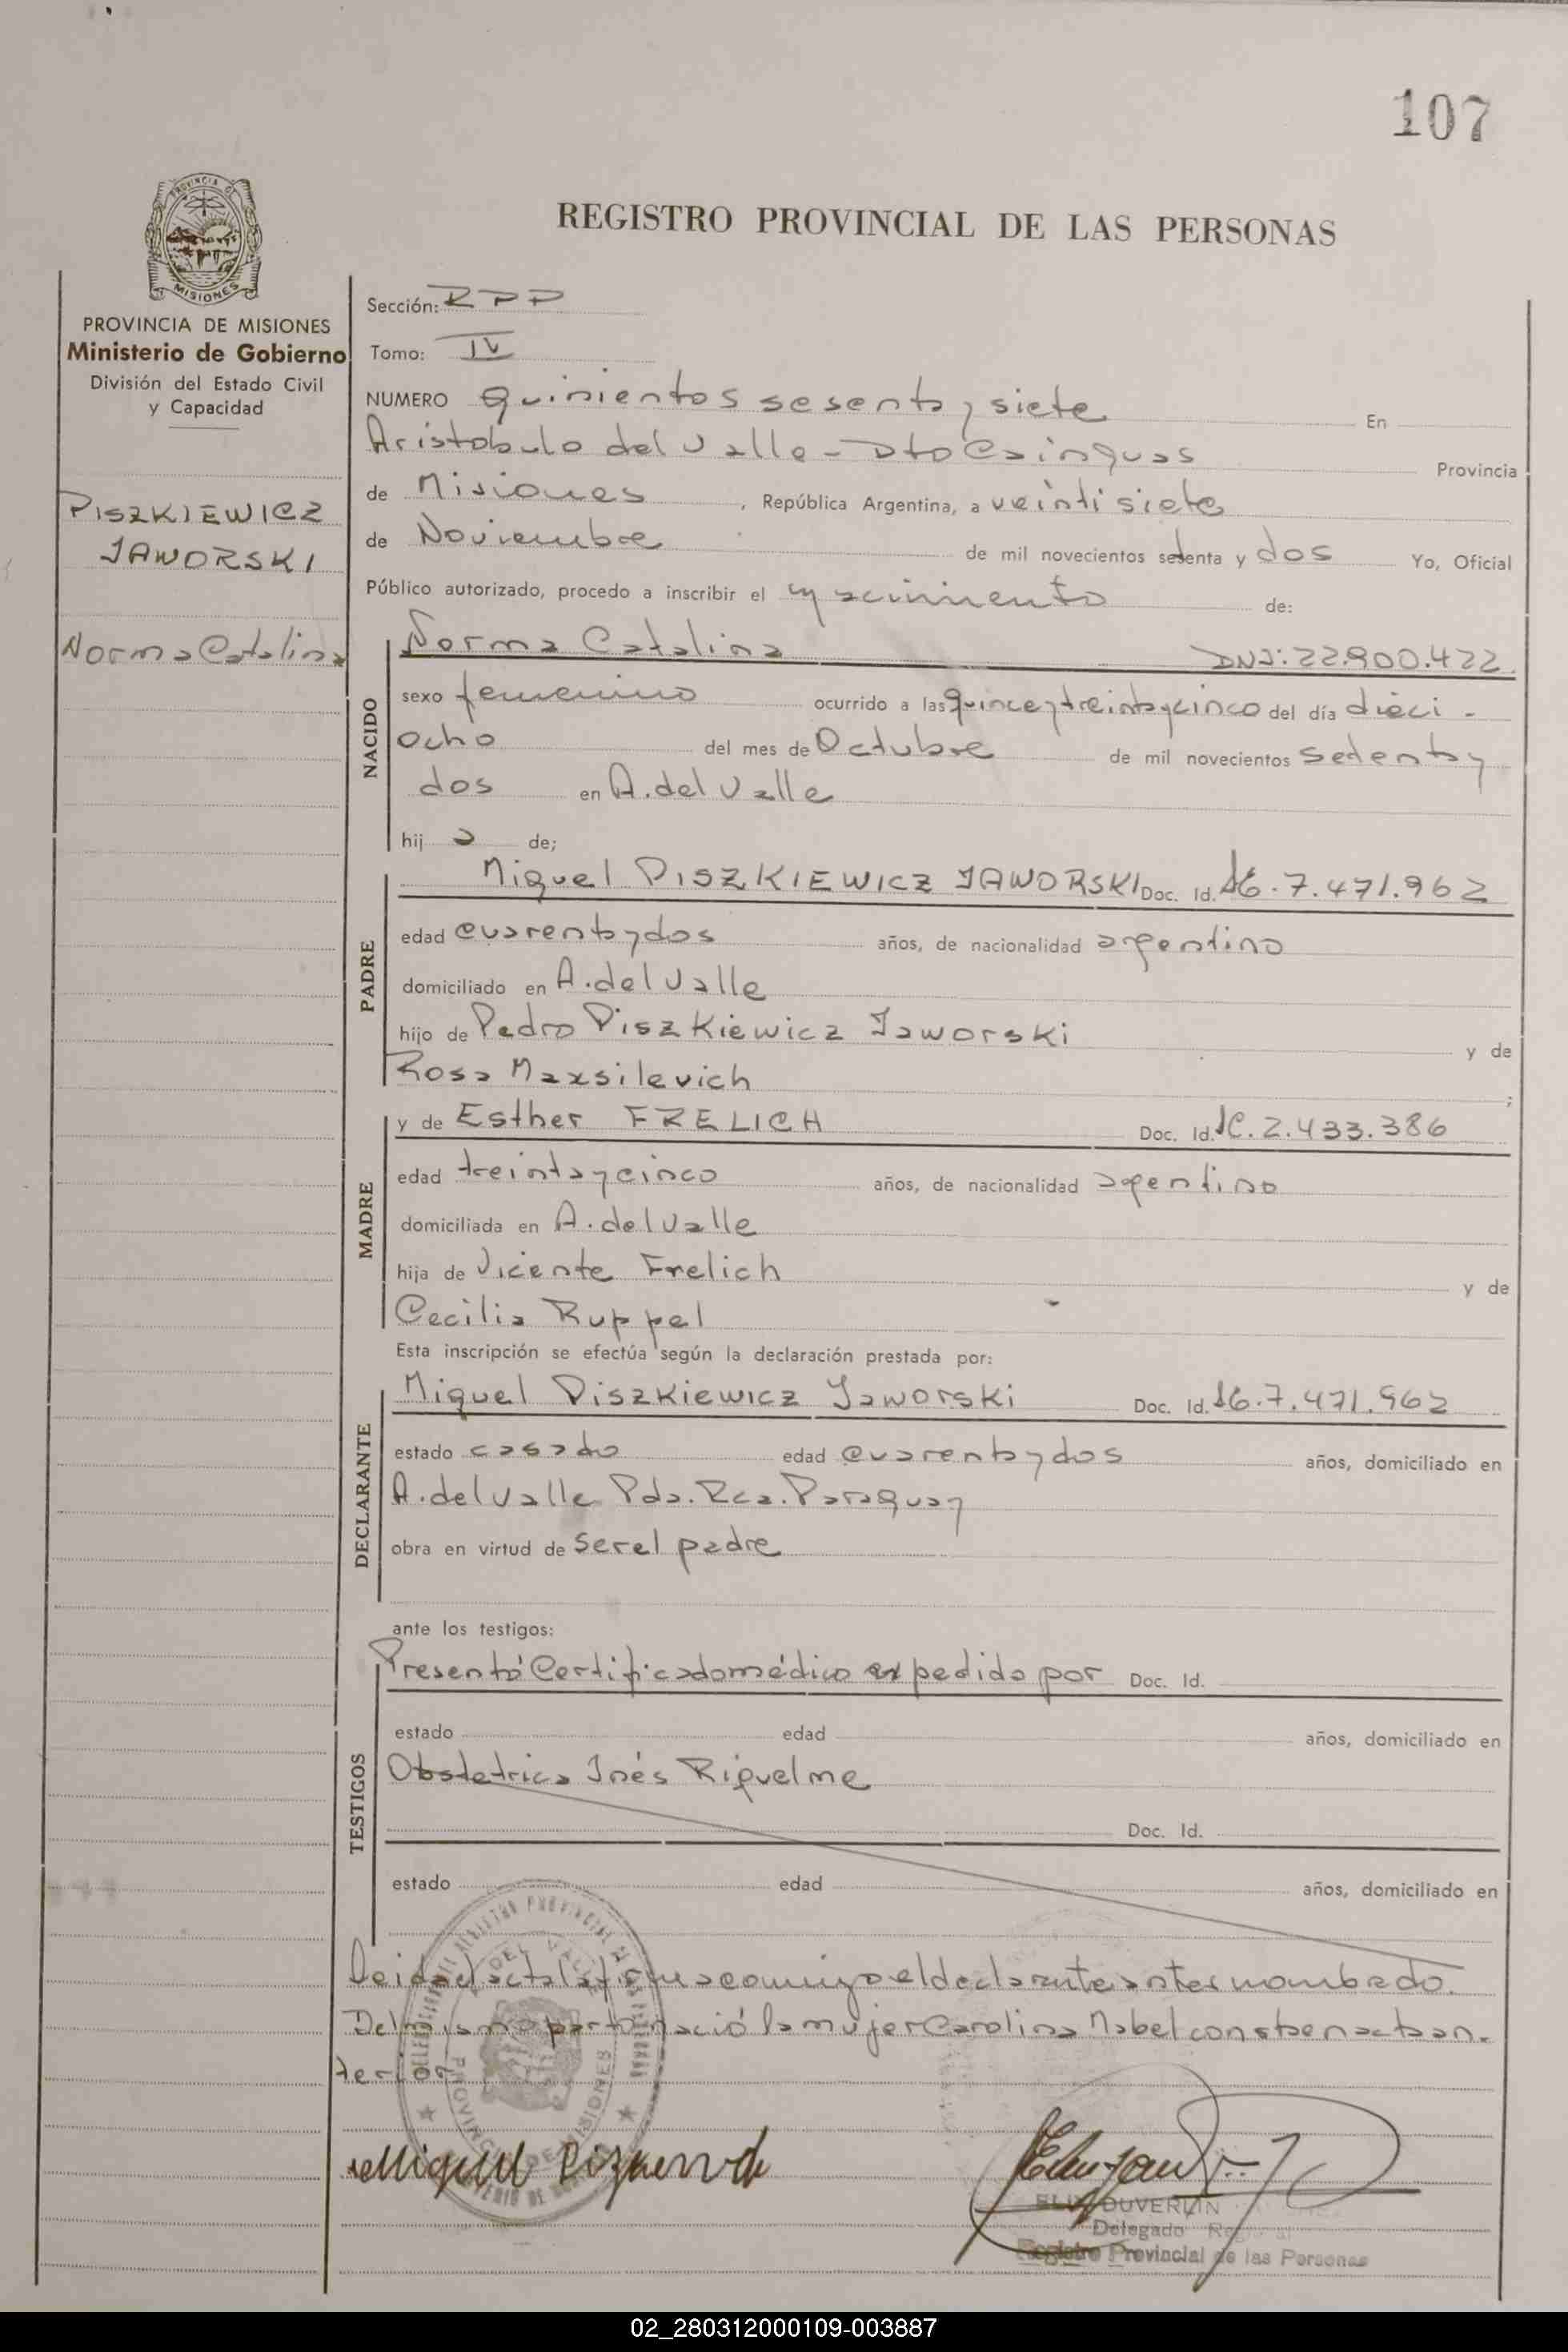 107
PROVINCIA DE
MISIONES
REGISTRO PROVINCIAL DE LAS PERSONAS
PROVINCIA DE MISIONES
Ministerio de Gobierno
División del Estado Civil
y Capacidad
PISZKIEWICZ
JAWORSKI
Norma Catalina
Sección: RPP
Tomo: IV
NUMERO quinientos sesenta y siete En
Aristobulo del Valle - Dto Cainguas Provincia
de Misiones, República Argentina, a veintisiete
de Noviembre de mil novecientos setenta y dos Yo, Oficial
Público autorizado, procedo a inscribir el nacimiento de:
NACIDO
Norma Catalina DNI: 22.900.422
sexo femenino ocurrido a las quince y treinta y cinco del día dieci-
ocho del mes de Octubre de mil novecientos setenta y
dos en A. del Valle
hij a de;
PADRE
Miguel PISZKIEWICZ JAWORSKI Doc. Id. 7.471.962
edad cuarenta y dos años, de nacionalidad argentino
domiciliado en A. del Valle
hijo de Pedro Piszkiewicz Jaworski y de
Rosa Maxsilevich ;
MADRE
y de Esther FRELICH Doc. Id. LC. 2.433.386
edad treinta y cinco años, de nacionalidad argentino
domiciliada en A. del Valle
hija de Vicente Frelich y de
Cecilia Ruppel
Esta inscripción se efectúa según la declaración prestada por:
DECLARANTE
Miguel Piszkiewicz Jaworski Doc. Id. 7.471.962
estado casado edad cuarenta y dos años, domiciliado en
A. del Valle Pda. Rca. Paraguay
obra en virtud de ser el padre
ante los testigos:
TESTIGOS
Presentó Certificado médico expedido por Doc. Id.
estado edad años, domiciliado en
Obstetrica Inés Riquelme
Doc. Id.
estado edad años, domiciliado en
Leida el acta la firma conmigo el declarante antes nombrado.
Del mismo parto nació la mujer Carolina Mabel consta en acta an-
terior
Miguel
DUVERLIN
Delegado
Registro Provincial de las Personas
02_280312000109-003887